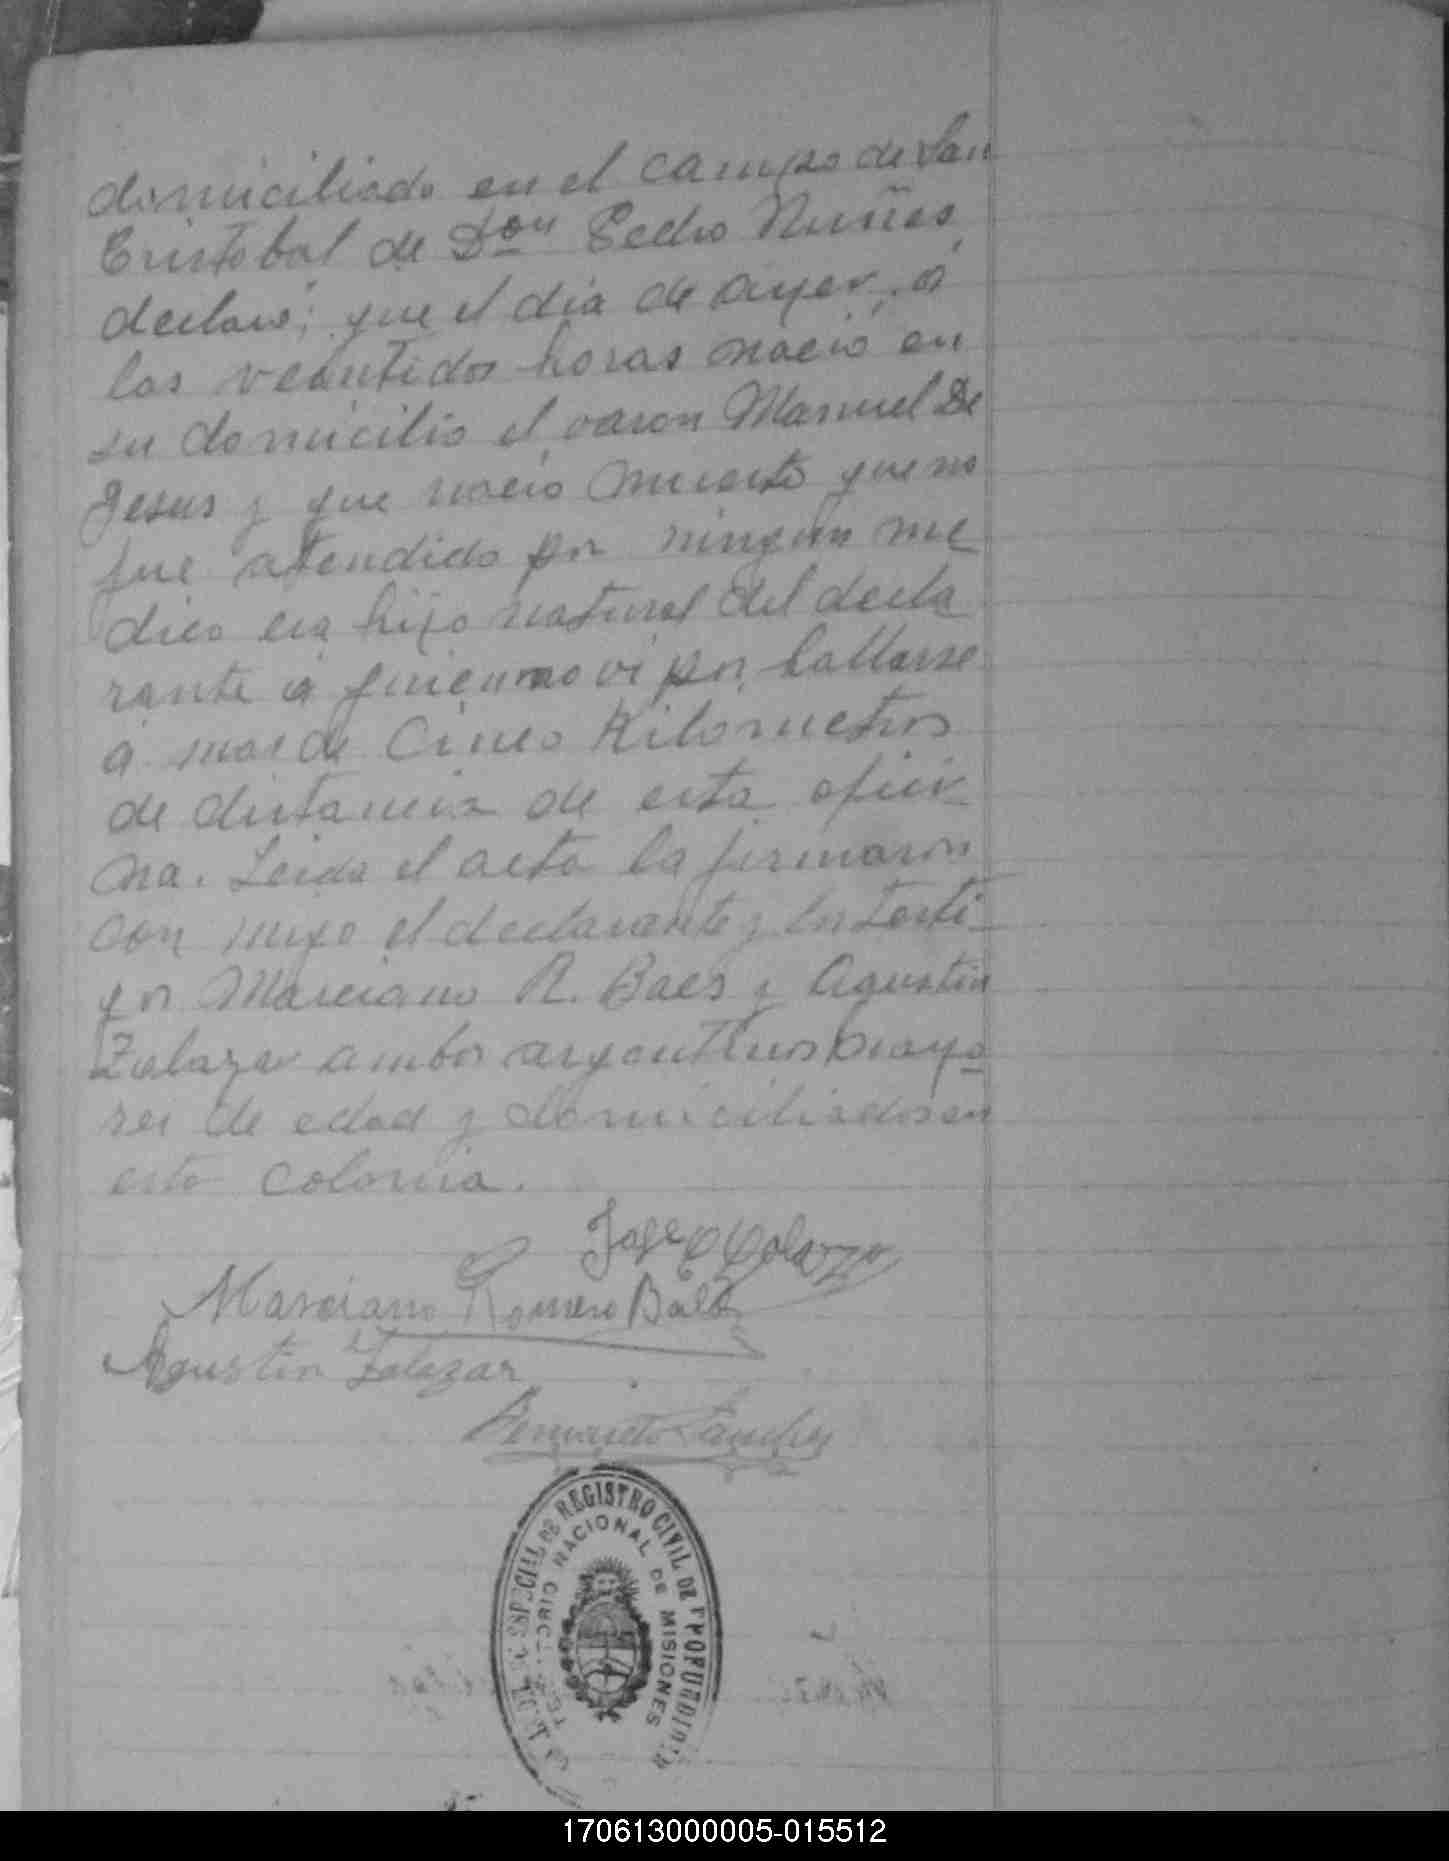 domiciliado en el campo de San
Cristobal de Don Pedro Nuñes
declaró; que el dia de ayer, á
las veintidos horas nació en
su domicilio el varon Manuel De
Jesus y que nació muerto que no
fue atendido por ningun me
dico era hijo natural del decla
rante á quien no vi por hallarse
á mas de Cinco Kilometros
de distancia de esta ofici
na. Leida el acta la firmaron
con migo el declarante y los testi
gos Marciano R. Baes y Agustin
Zalazar ambos argentinos mayo
res de edad y domiciliados en
esta colonia.
Marciano Romero Baez
Agustin Zalazar
ESPECIAL DE REGISTRO CIVIL DE PROFUNDIDAD
TERRITORIO NACIONAL DE MISIONES
170613000005-015512